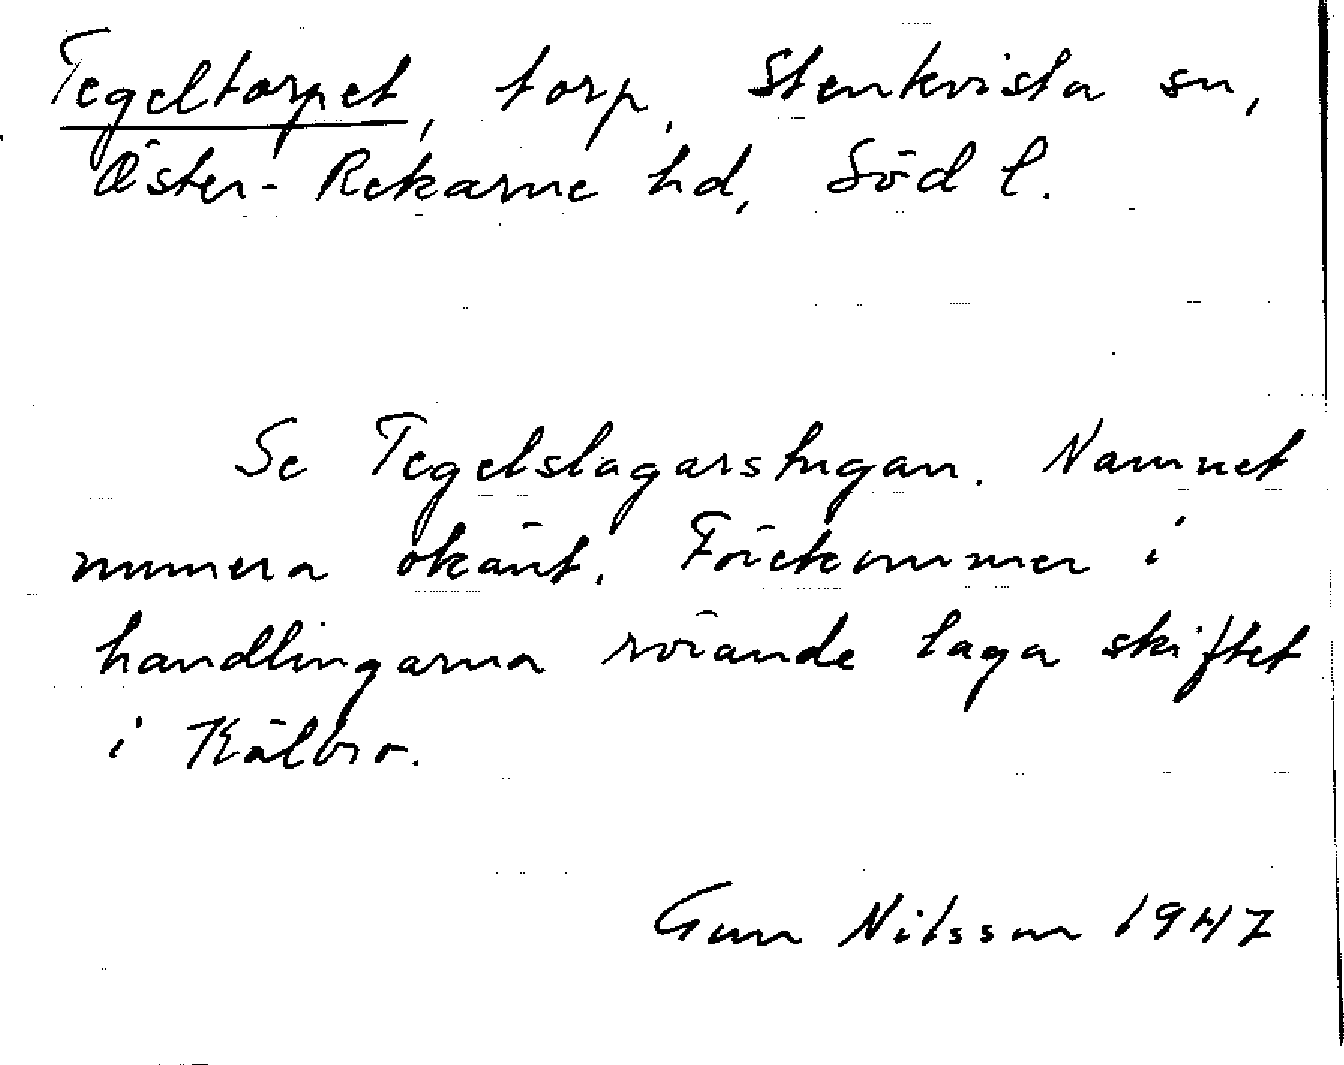 Tegeltorpet, torp, Stenkvista sn,
Öster-Rekarne hd, Söd l.
Se Tegelslagarstugan. Namnet
numera okänt. Förekommer i
handlingarna rörande laga skiftet
i Kälbro.
Gun Nilsson 1947